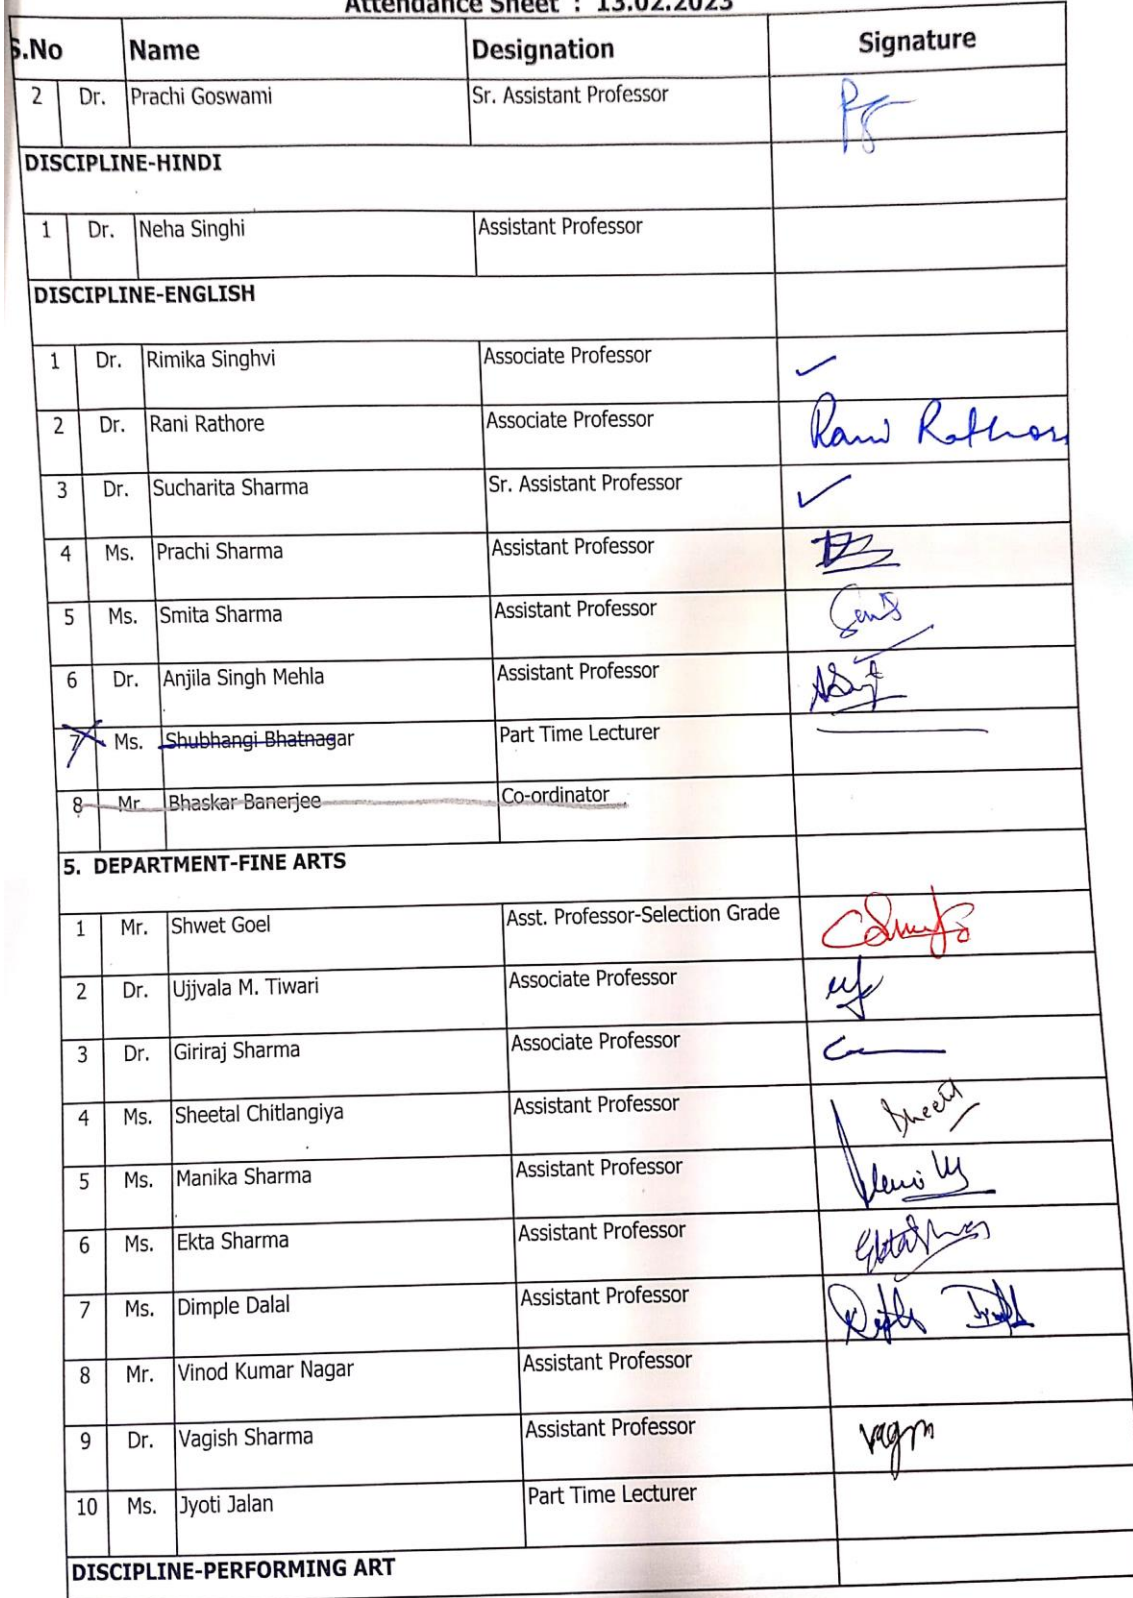 Attendance Sheet : 13.02.2023
S.No Name Designation Signature
2 Dr. Prachi Goswami Sr. Assistant Professor
DISCIPLINE-HINDI
1 Dr. Neha Singhi Assistant Professor
DISCIPLINE-ENGLISH
1 Dr. Rimika Singhvi Associate Professor ✓
2 Dr. Rani Rathore Associate Professor Rani Rathore
3 Dr. Sucharita Sharma Sr. Assistant Professor ✓
4 Ms. Prachi Sharma Assistant Professor
5 Ms. Smita Sharma Assistant Professor
6 Dr. Anjila Singh Mehla Assistant Professor
7 Ms. Shubhangi Bhatnagar Part Time Lecturer
8 Mr. Bhaskar Banerjee Co-ordinator
5. DEPARTMENT-FINE ARTS
1 Mr. Shwet Goel Asst. Professor-Selection Grade
2 Dr. Ujjvala M. Tiwari Associate Professor
3 Dr. Giriraj Sharma Associate Professor
4 Ms. Sheetal Chitlangiya Assistant Professor Sheetal
5 Ms. Manika Sharma Assistant Professor
6 Ms. Ekta Sharma Assistant Professor
7 Ms. Dimple Dalal Assistant Professor
8 Mr. Vinod Kumar Nagar Assistant Professor
9 Dr. Vagish Sharma Assistant Professor
10 Ms. Jyoti Jalan Part Time Lecturer
DISCIPLINE-PERFORMING ART